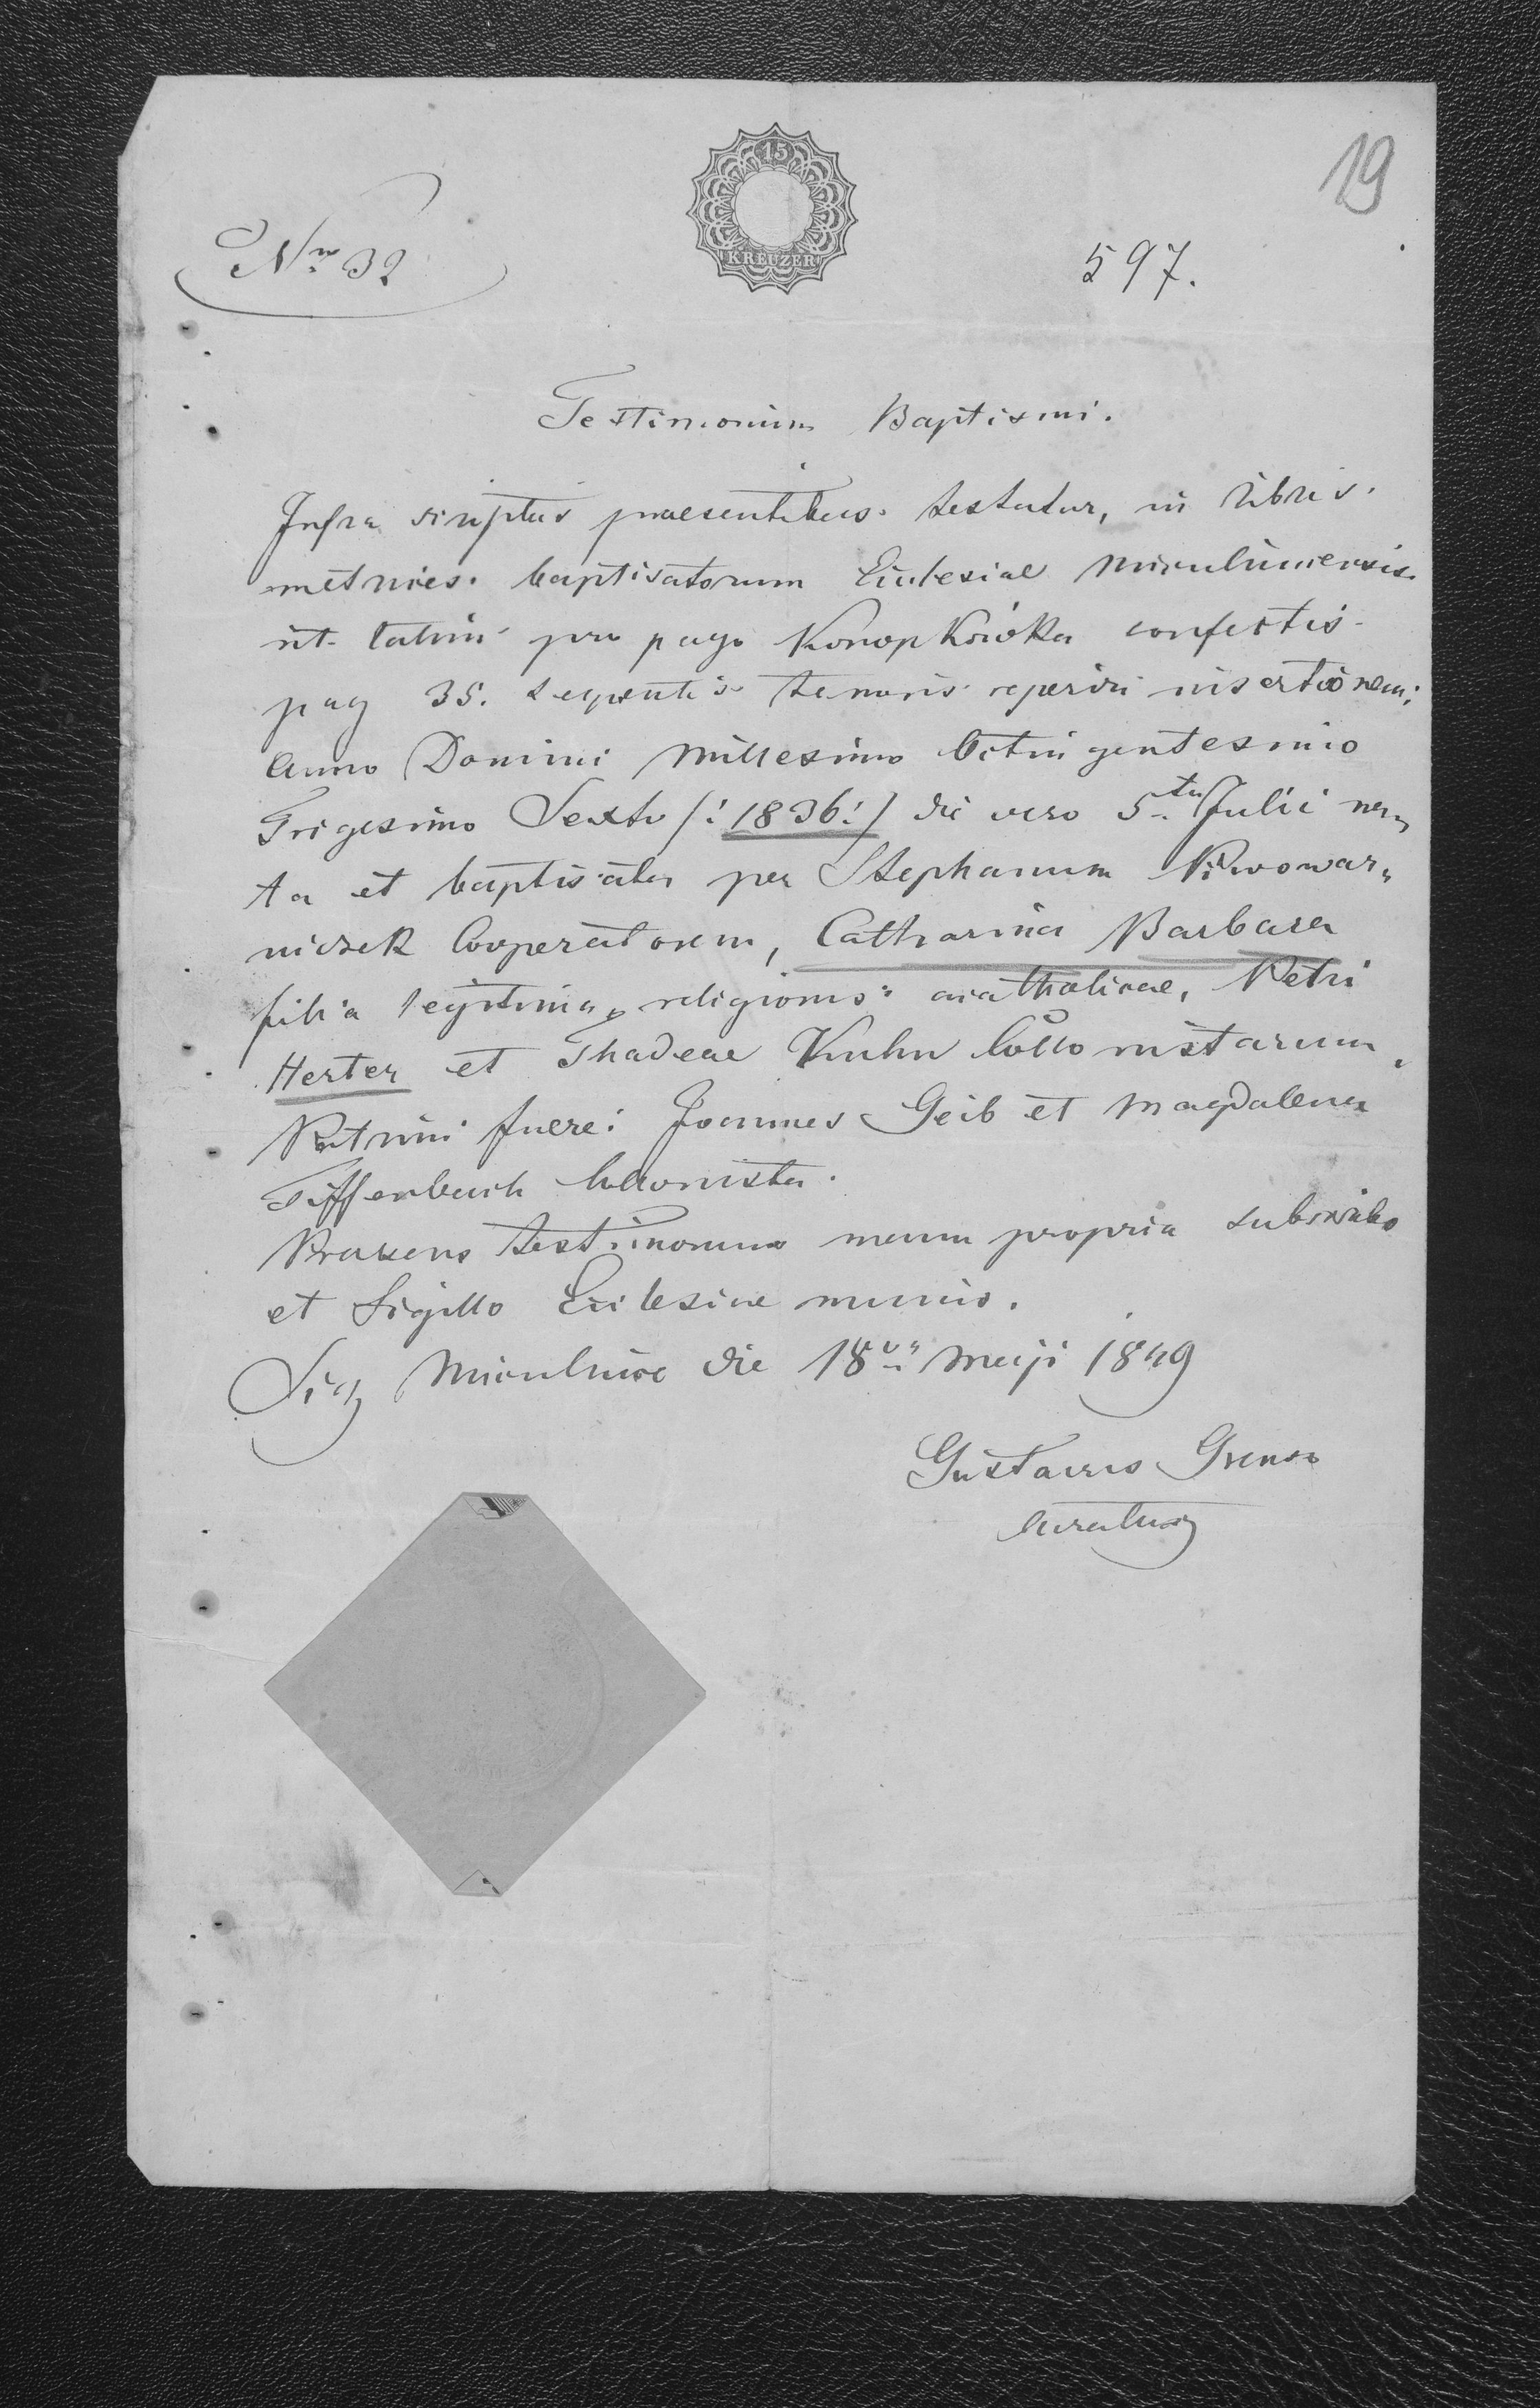 19
15
KREUZER
Nro 32
597.
Testimonium Baptismi.
Infra scriptus praesentibus testatur, in libris
metrices baptisatorum Ecclesiae Miculincensis
rit. latini pro pago Konopkówka confectis
pag 35. sequentis tenoris reperiri insertionem;
Anno Domini Millesimo Octingentesimo
Trigesimo Sexto /: 1836 :/ die vero 5ta Julii na„
ta et baptisata per Stephanum Piwowar„
niczek Cooperatorem, Catharina Barbara
filia legitima, religionis acatholicae, Petri
Herter et Thadeae Kuhn Collonistarum,
Patrini fuere: Joannes Geib et Magdalena
Tiffenbach Collonista.
Praesens testimonium manu propria subscribo
et Sigillo Ecclesiae munio.
Sig Miculince die 18va Maji 1849
Gustavus
Curatus